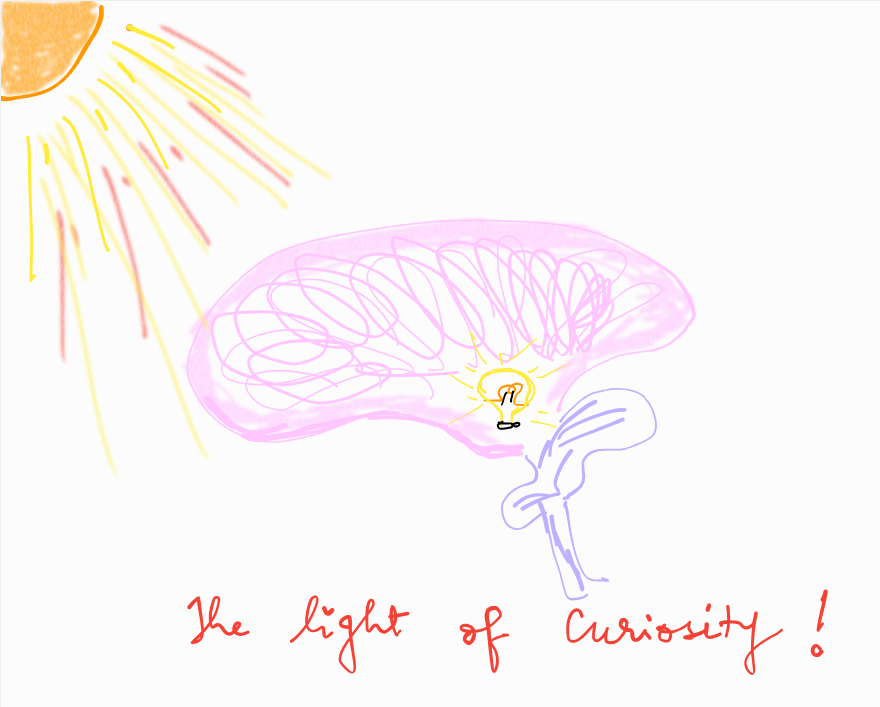 The light of Curiosity !